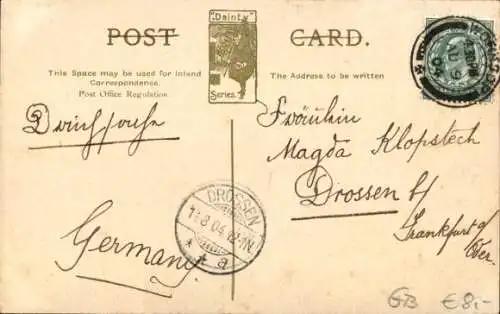 "Dainty"
POST CARD.
Series.
This Space may be used for Inland
Correspondence.
Post Office Regulation.
The Address to be written
Drucksache
Germany.
Fräulein
Magda Klopstech
Drossen b/
Frankfurt a/
Oder.
DROSSEN
* * a
AU 9
04
GB €8,-